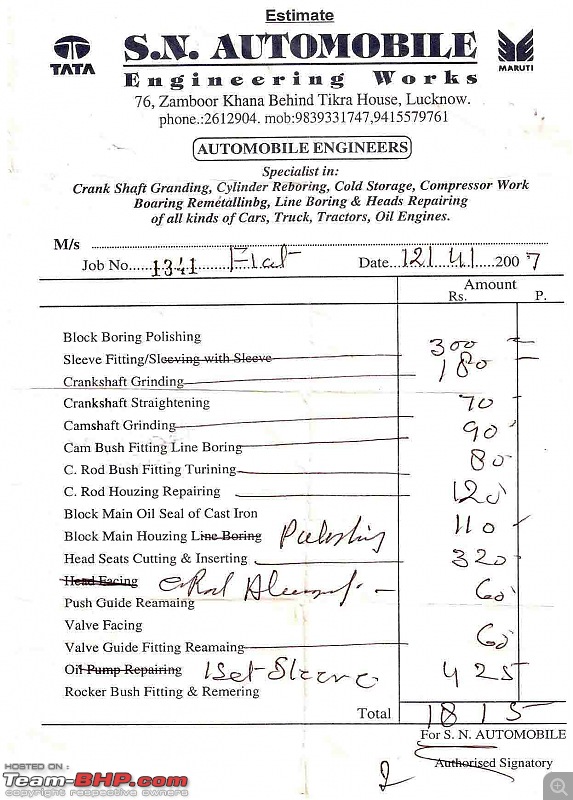 Estimate
TATA
S.N. AUTOMOBILE
MARUTI
Engineering Works
76, Zamboor Khana Behind Tikra House, Lucknow.
phone.:2612904. mob:9839331747,9415579761
AUTOMOBILE ENGINEERS
Specialist in:
Crank Shaft Granding, Cylinder Reboring, Cold Storage, Compressor Work
Boaring Remetallinbg, Line Boring & Heads Repairing
of all kinds of Cars, Truck, Tractors, Oil Engines.
M/s
Job No. 1341 Fiat Date 12/4/2007
Amount
Rs. P.
Block Boring Polishing 300
Sleeve Fitting/Sleeving with Sleeve 180
Crankshaft Grinding
Crankshaft Straightening 70
Camshaft Grinding 90
Cam Bush Fitting Line Boring 80
C. Rod Bush Fitting Turining
C. Rod Houzing Repairing 120
Block Main Oil Seal of Cast Iron 110
Block Main Houzing Line Boring
Head Seats Cutting & Inserting 320
Head Facing 60
Push Guide Reamaing
Valve Facing 60
Valve Guide Fitting Reamaing
Oil Pump Repairing 1 Set Sleeve 425
Rocker Bush Fitting & Remering
Total 1815
For S. N. AUTOMOBILE
Authorised Signatory
HOSTED ON :
Team-BHP.com
copyright respective owners